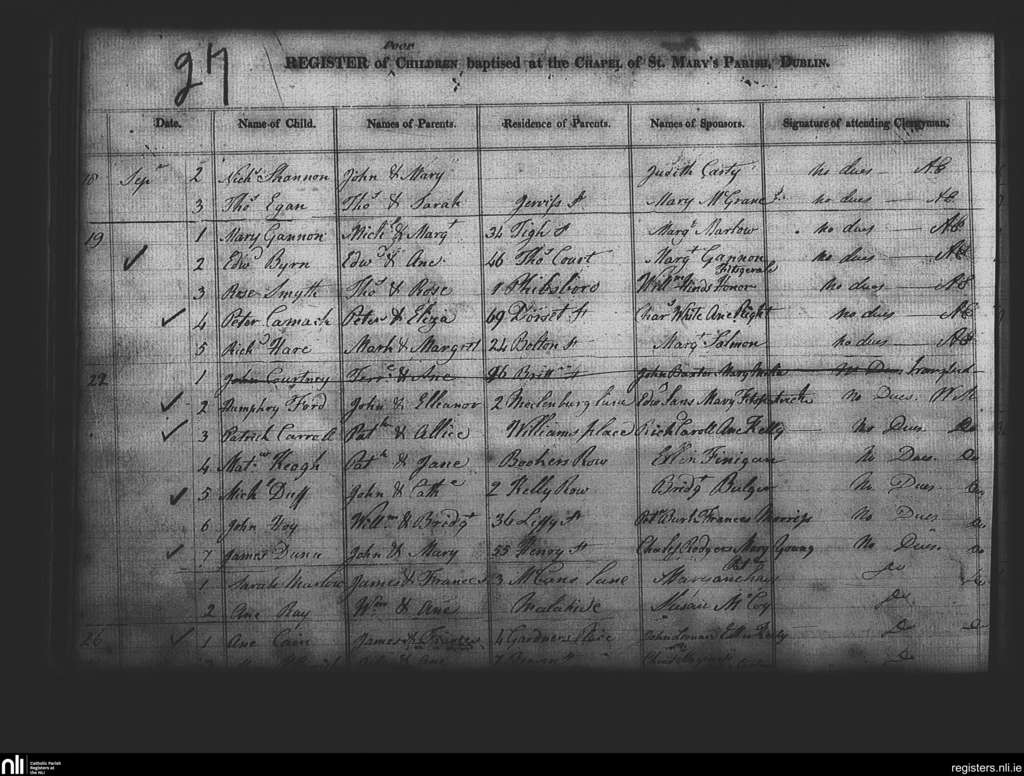 Poor
27
REGISTER of CHILDREN baptised at the CHAPEL of ST. MARY'S PARISH, DUBLIN.
Date. Name of Child. Names of Parents. Residence of Parents. Names of Sponsors. Signature of attending Clergyman.
Sepr 2 Nichs Shannon John & Mary Judith Carty no dues
3 Thos Egan Thos & Sarah Jerviss St Mary McGrane no dues
19 1 Mary Gannon Mich & Margt 34 Tigh St Margt Marlow no dues
2 Edwd Byrn Edwd & Ane 46 Thos Court Margt Gannon no dues
Fitzgerald
3 Rose Smyth Thos & Rose 1 Phibsboro Willm Hinds Honor no dues
4 Peter Camack Peter & Eliza 69 Dorset St Chas White Ane no dues
5 Richd Hare Mark & Margret 24 Bolton St Margt Salmon no dues
22 1 John Courtney & Ane Britt St John Baxter Mary No Dues
2 Humphry Ford John & Elleanor 2 Mecklenburg Lane Edwd Mary Fitzpatrick No Dues. W.
3 Patrick Carroll Patk & Allice Williams place Rich Caroll Ane Kelly No Dues Do
4 Keogh Patk & Jane Bookers Row Finigan No Dues. Do
5 Michl Duff John & Cathe 2 Kelly Row Bridgt Bulger No Dues Do
6 John Hoy Willm & Bridgt 36 Liffy St Patk Burk Frances Morriss No Dues Do
7 James Dunn John & Mary 55 Henry St Charles Rodgers Mary Young No Dues. Do
1 Sarah Marlow James & Frances 3 McCans Lane Do
2 Ane Ray Wm & Ane Malahide Susan McCoy Do
26 1 Ane Cain James & Frances 4 Gardners Place John Do
& Ane 7 Do
nli Catholic Parish
Registers at
the NLI
registers.nli.ie